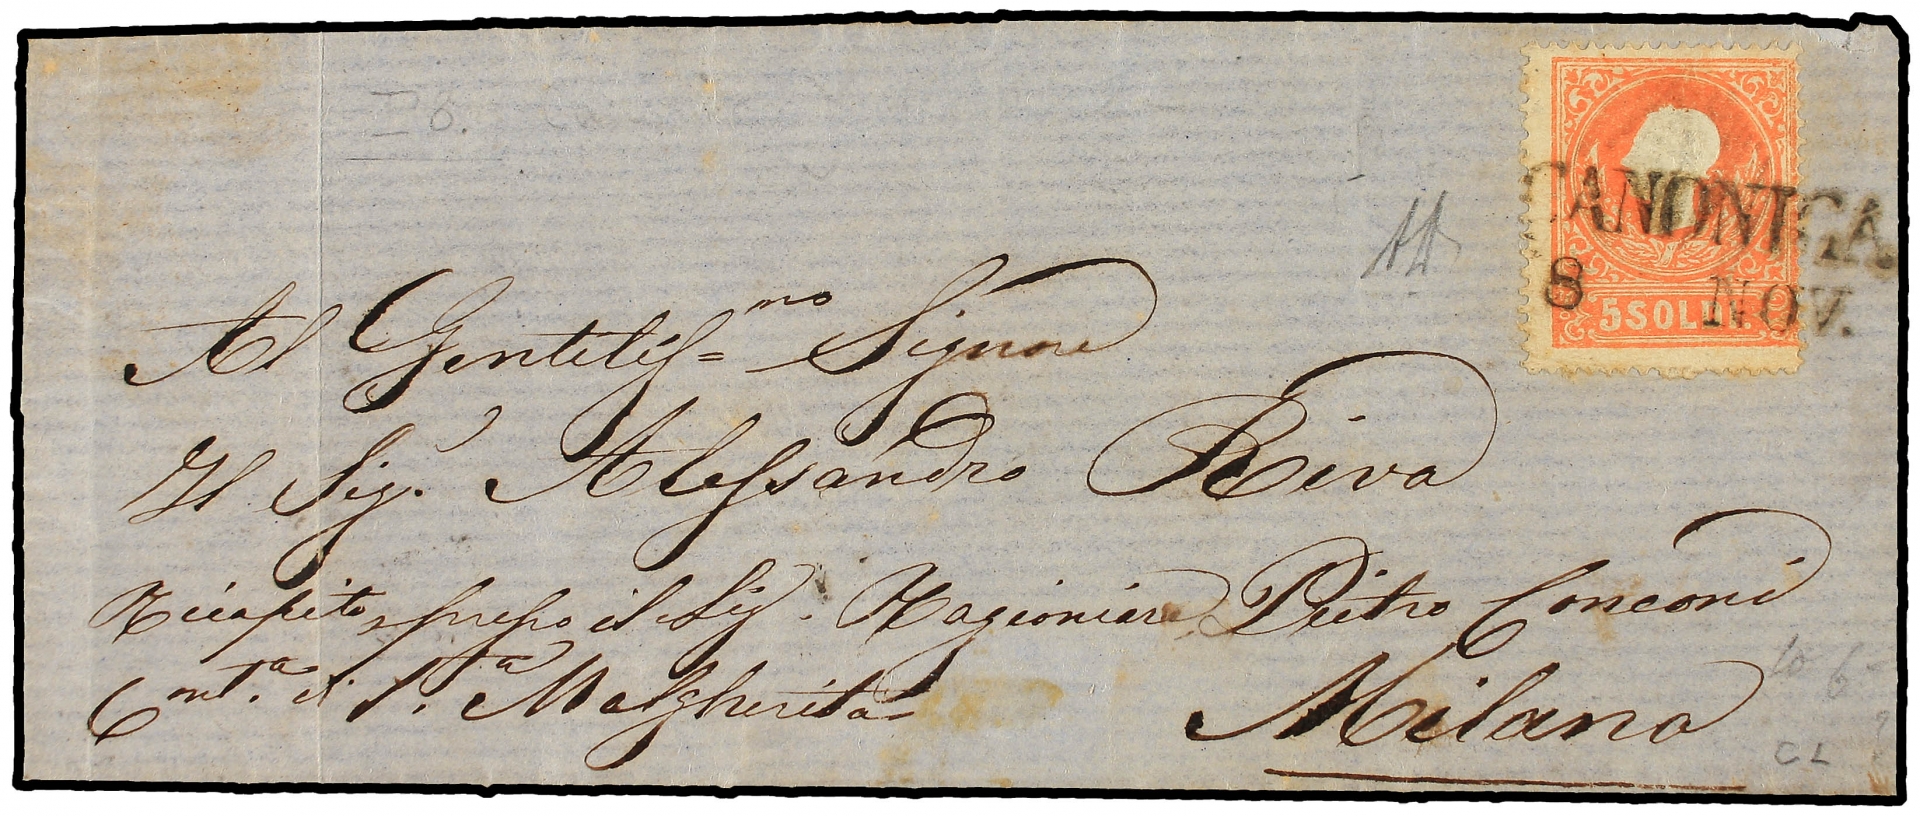 CANONICA
8 NOV.
5 SOLDI
Al Gentiliss=mo Signore
Il Sig.r Alessandro Riva
Ricapito presso il Sig. Ragioniere Pietro Conconi
Cont.a di S.ta Malgherita
Milano
CL